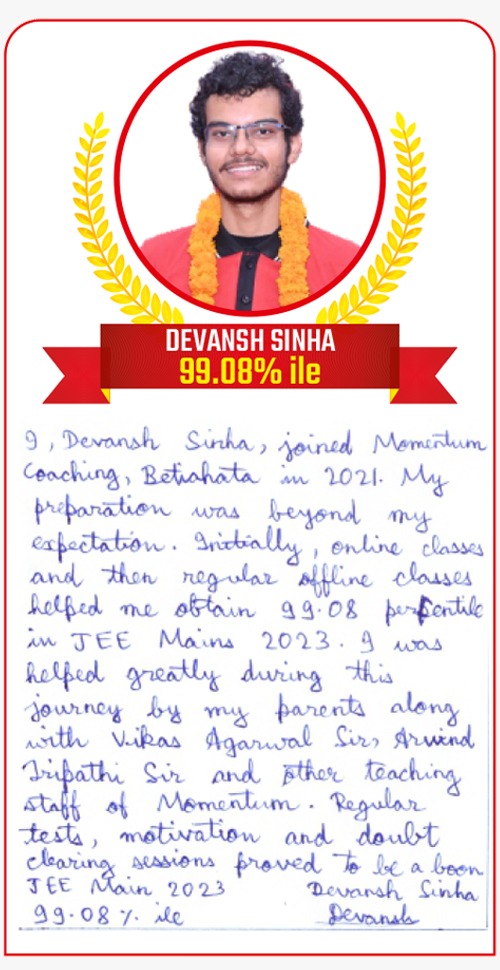 DEVANSH SINHA
99.08% ile
I, Devansh Sinha, joined Momentum
Coaching, Betiahata in 2021. My
preparation was beyond my
expectation. Initially, online classes
and then regular offline classes
helped me obtain 99.08 percentile
in JEE Mains 2023. I was
helped greatly during this
journey by my parents along
with Vikas Agarwal Sir, Arvind
Tripathi Sir and other teaching
staff of Momentum. Regular
tests, motivation and doubt
clearing sessions proved to be a boon
JEE Main 2023 Devansh Sinha
99.08 % ile Devansh